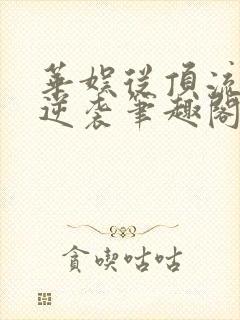 華娛從頂流
逆袭筆趣閣
貪喫咕咕